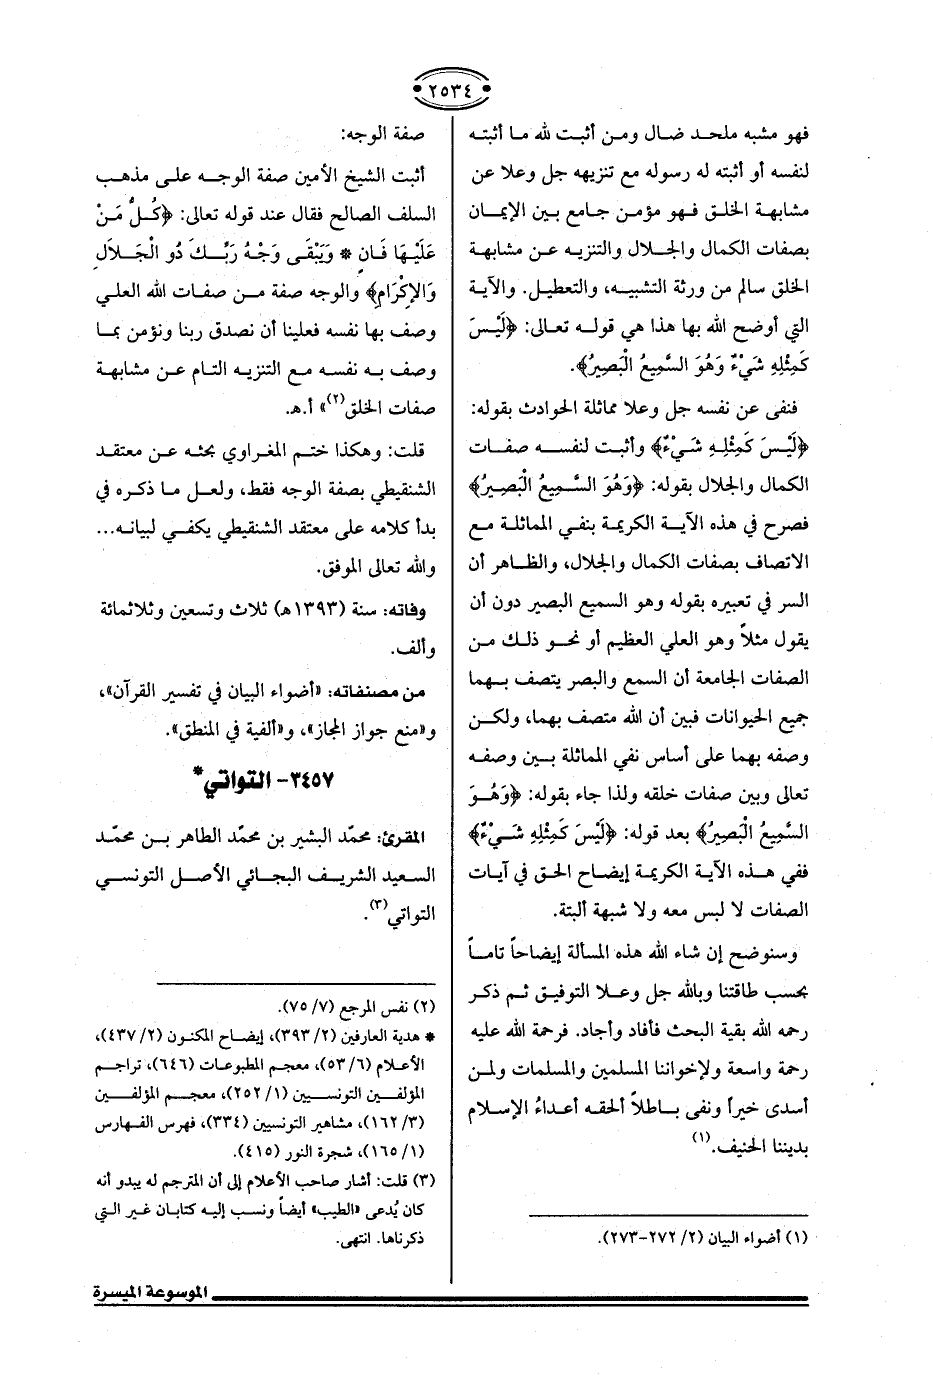 ٢٥٣٤
فهو مشبه ملحد ضال ومن أثبت لله ما أثبته
لنفسه أو أثبته له رسوله مع تنزيهه جل وعلا عن
مشابهة الخلق فهو مؤمن جامع بين الإيمان
بصفات الكمال والجلال والتنزيه عن مشابهة
الخلق سالم من ورثة التشبيه، والتعطيل. والآية
التي أوضح الله بها هذا هي قوله تعالى: ﴿لَيْسَ
كَمِثْلِهِ شَيْءٌ وَهُوَ السَّمِيعُ الْبَصِيرُ﴾.
فنفى عن نفسه جل وعلا مماثلة الحوادث بقوله:
﴿لَيْسَ كَمِثْلِهِ شَيْءٌ﴾ وأثبت لنفسه صفات
الكمال والجلال بقوله: ﴿وَهُوَ السَّمِيعُ الْبَصِيرُ﴾
فصرح في هذه الآية الكريمة بنفي المماثلة مع
الاتصاف بصفات الكمال والجلال، والظاهر أن
السر في تعبيره بقوله وهو السميع البصير دون أن
يقول مثلاً وهو العلي العظيم أو نحو ذلك من
الصفات الجامعة أن السمع والبصر يتصف بهما
جميع الحيوانات فبين أن الله متصف بهما، ولكن
وصفه بهما على أساس نفي المماثلة بين وصفه
تعالى وبين صفات خلقه ولذا جاء بقوله: ﴿وَهُوَ
السَّمِيعُ الْبَصِيرُ﴾ بعد قوله: ﴿لَيْسَ كَمِثْلِهِ شَيْءٌ﴾
ففي هذه الآية الكريمة إيضاح الحق في آيات
الصفات لا لبس معه ولا شبهة ألبتة.
وسنوضح إن شاء الله هذه المسألة إيضاحاً تاماً
بحسب طاقتنا وبالله جل وعلا التوفيق ثم ذكر
رحمه الله بقية البحث فأفاد وأجاد. فرحمة الله عليه
رحمة واسعة ولإخواننا المسلمين والمسلمات ولمن
أسدى خيراً ونفى باطلاً ألحقه أعداءُ الإسلام
بديننا الحنيف.(١)
(١) أضواء البيان (٢/ ٢٧٢-٢٧٣).
صفة الوجه:
أثبت الشيخ الأمين صفة الوجه على مذهب
السلف الصالح فقال عند قوله تعالى: ﴿كُلُّ مَنْ
عَلَيْهَا فَانٍ * وَيَبْقَى وَجْهُ رَبِّكَ ذُو الْجَلَالِ
وَالإِكْرَامِ﴾ والوجه صفة من صفات الله العلي
وصف بها نفسه فعلينا أن نصدق ربنا ونؤمن بما
وصف به نفسه مع التنزيه التام عن مشابهة
صفات الخلق(٢)» أ.هـ.
قلت: وهكذا ختم المغراوي بحثه عن معتقد
الشنقيطي بصفة الوجه فقط، ولعل ما ذكره في
بدأ كلامه على معتقد الشنقيطي يكفي لبيانه...
والله تعالى الموفق.
وفاته: سنة (١٣٩٣ هـ) ثلاث وتسعين وثلاثمائة
وألف.
من مصنفاته: «أضواء البيان في تفسير القرآن»،
و«منع جواز المجاز»، و«ألفية في المنطق».
٣٤٥٧- التواتي*
المقرئ: محمّد البشير بن محمّد الطاهر بن محمّد
السعيد الشريف البجائي الأصل التونسي
التواتي(٣).
(٢) نفس المرجع (٧/ ٧٥).
* هدية العارفين (٢/ ٣٩٣)، إيضاح المكنون (٢/ ٤٣٧)،
الأعلام (٦/ ٥٣)، معجم المطبوعات (٦٤٦)، تراجم
المؤلفين التونسيين (١/ ٢٥٢)، معجم المؤلفين
(٣/ ١٦٢)، مشاهير التونسيين (٣٣٤)، فهرس الفهارس
(١/ ١٦٥)، شجرة النور (٤١٥).
(٣) قلت: أشار صاحب الأعلام إلى أن المترجم له يبدو أنه
كان يُدعى «الطيب» أيضاً ونسب إليه كتابان غير التي
ذكرناها. انتهى.
الموسوعة الميسرة